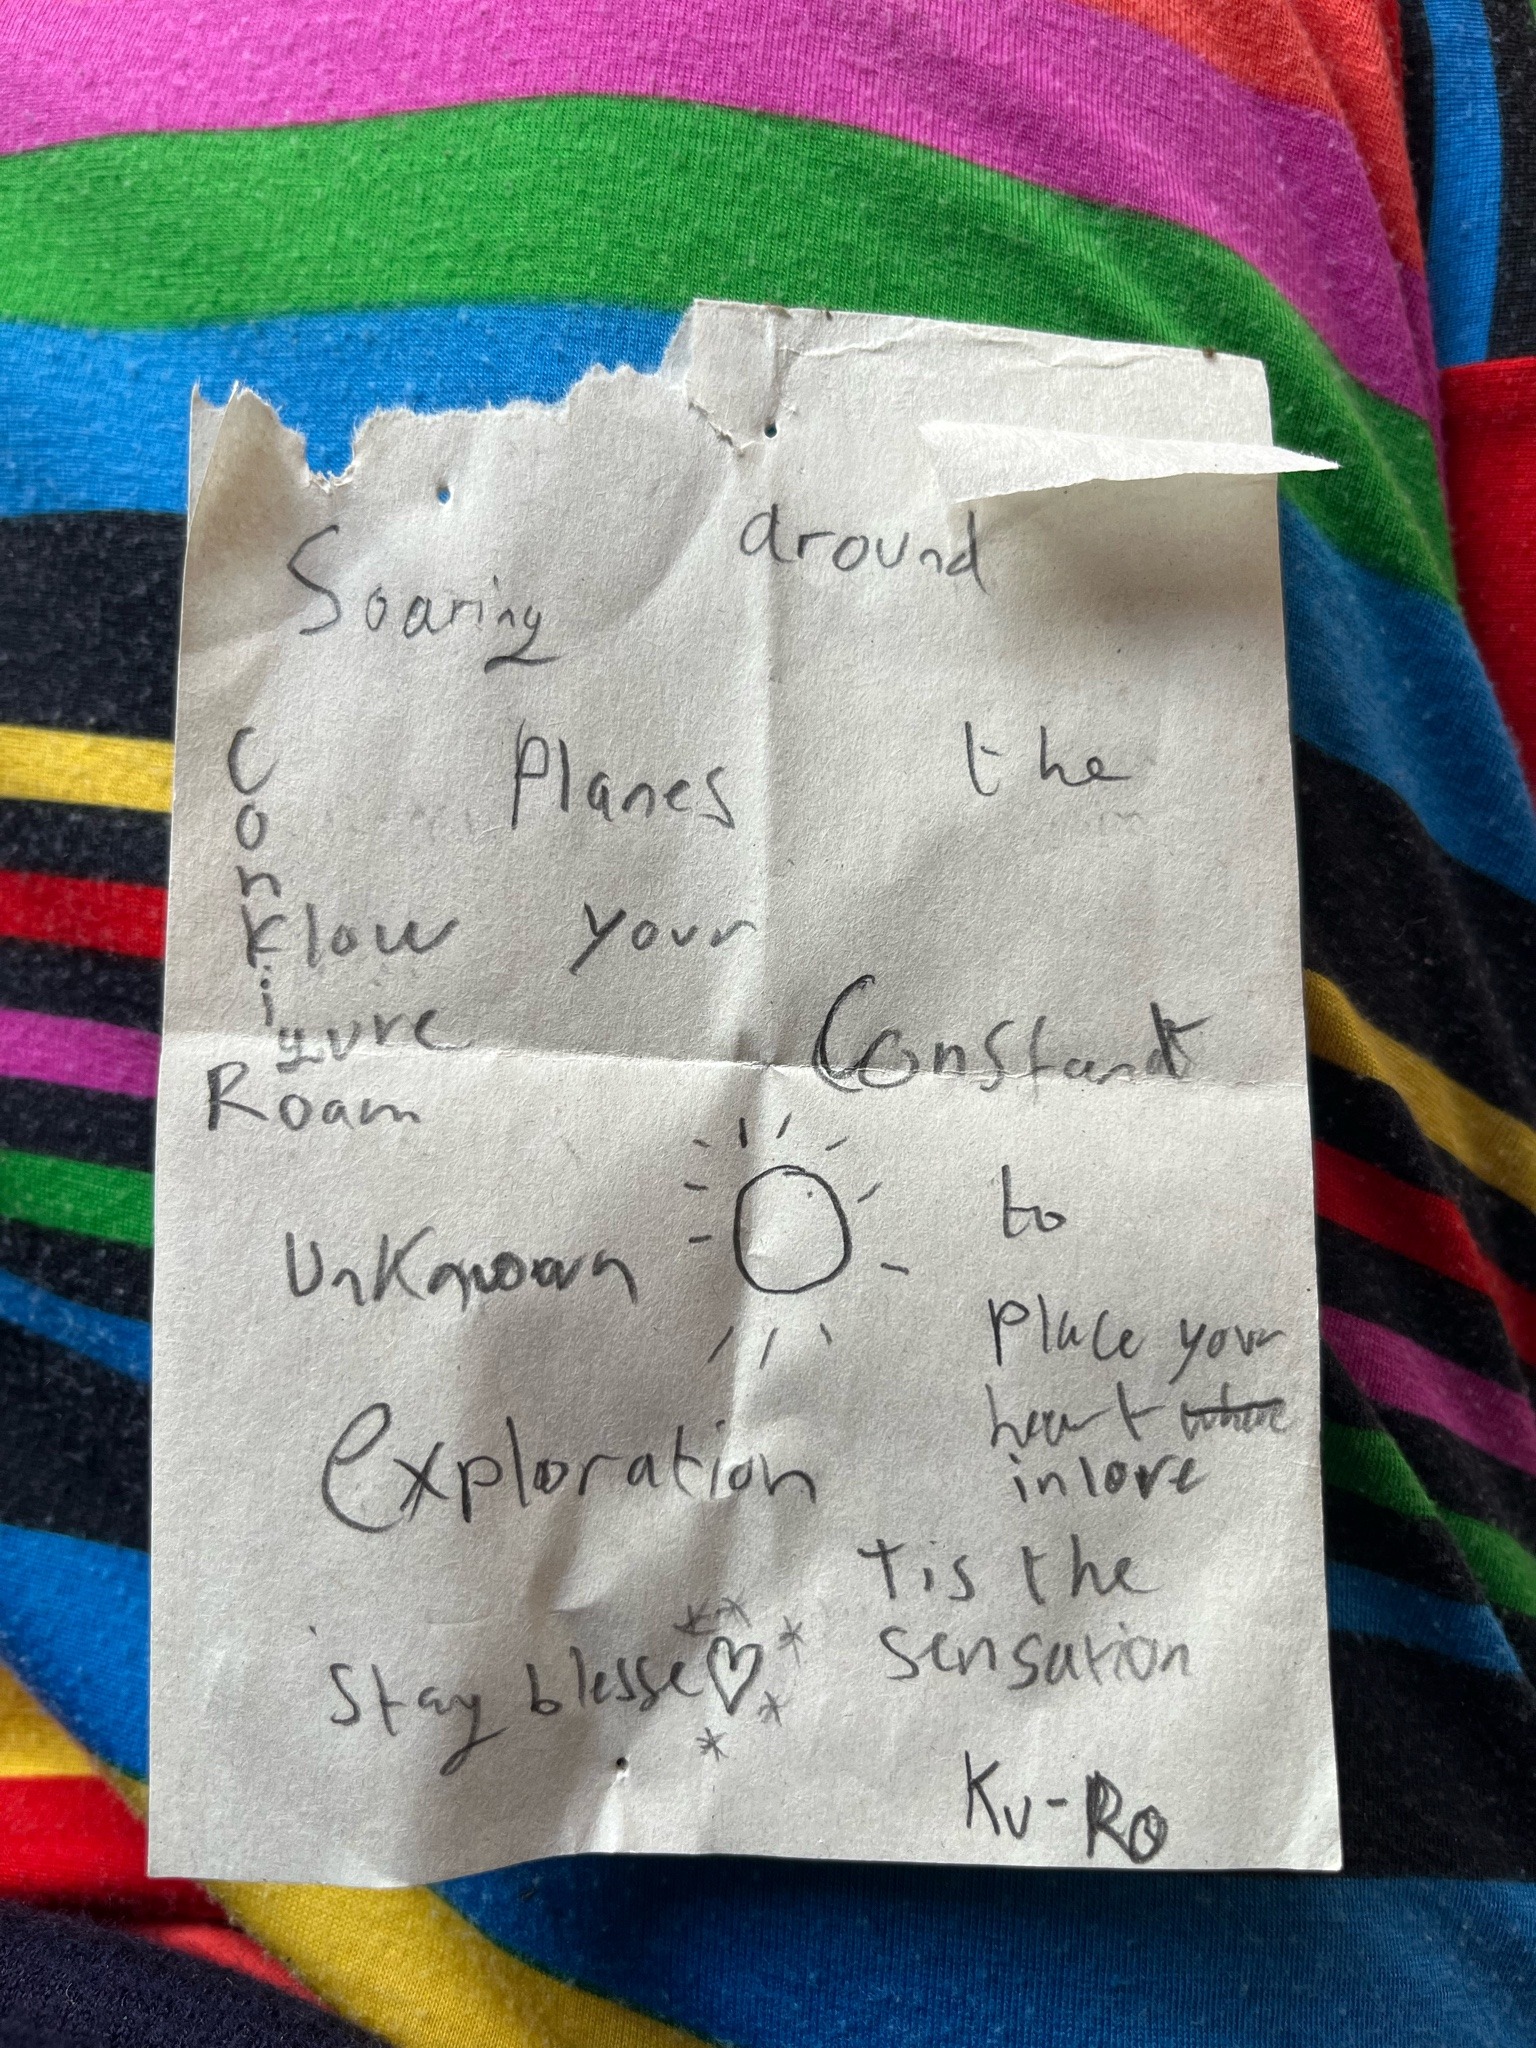 Soaring
around
Planes
the
C
o
n
Klow your
i
gure
Roam
Constant
Unknown
to
exploration
Place your
heart where
in love
tis the
sensation
Stay blesse♡
Ku-Ro